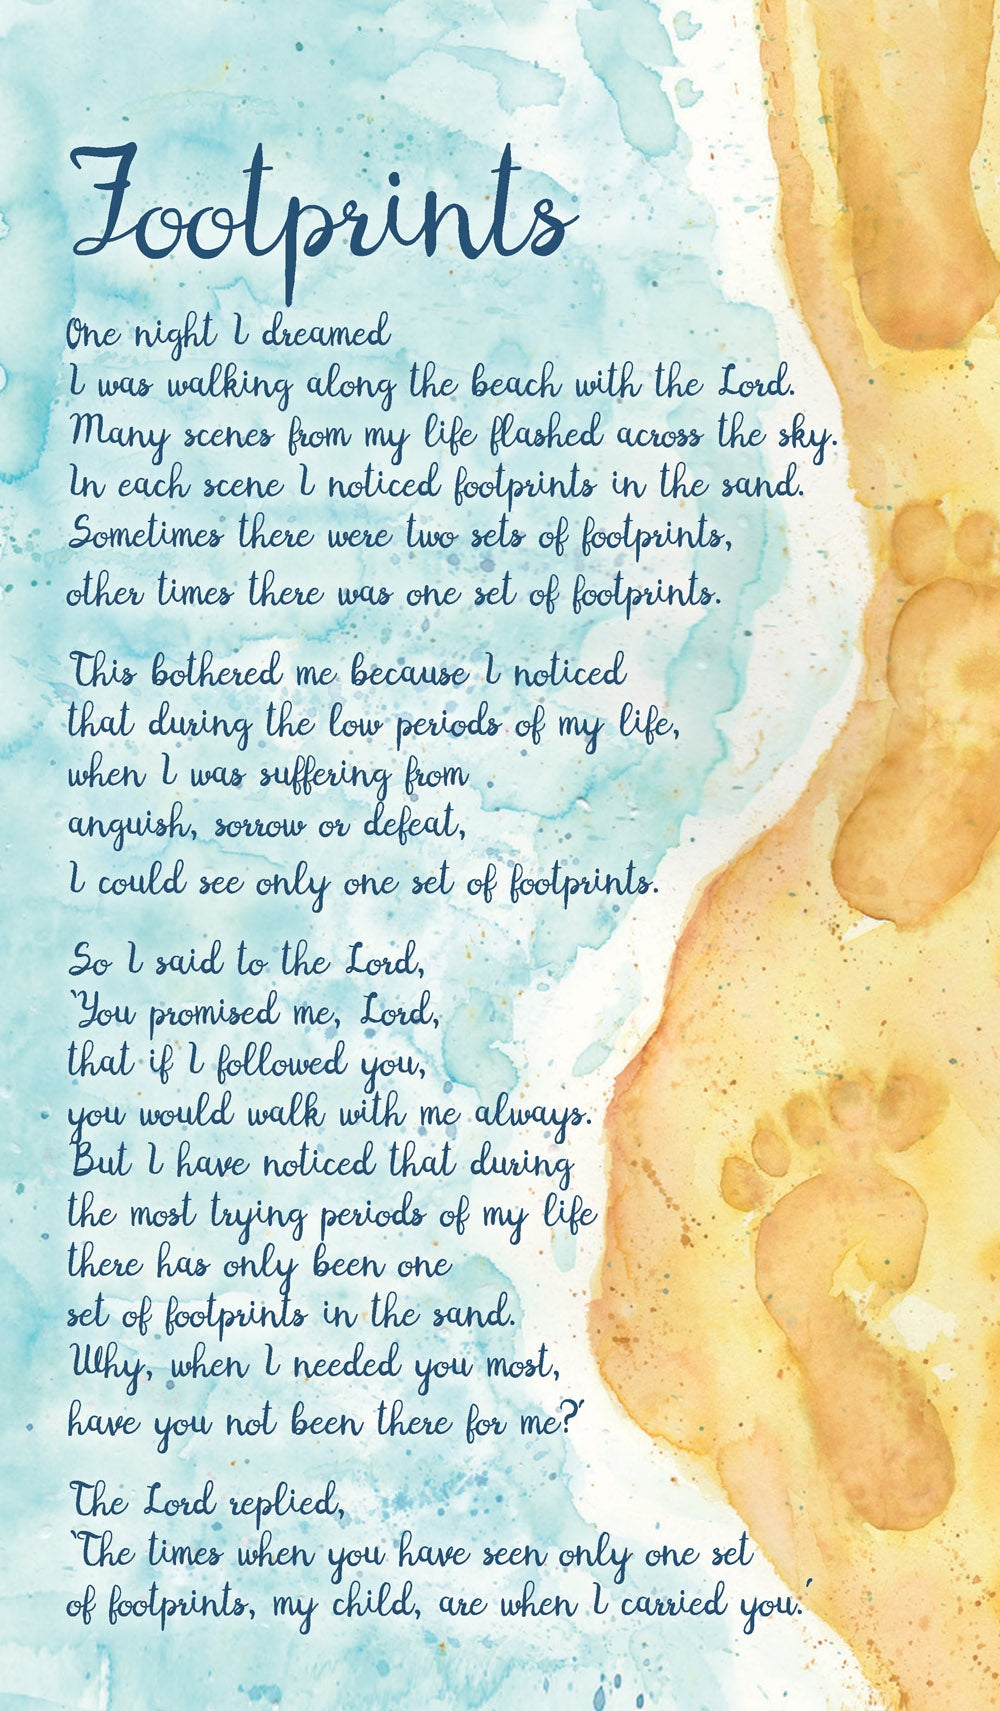 Footprints
One night I dreamed
I was walking along the beach with the Lord.
Many scenes from my life flashed across the sky.
In each scene I noticed footprints in the sand.
Sometimes there were two sets of footprints,
other times there was one set of footprints.
This bothered me because I noticed
that during the low periods of my life,
when I was suffering from
anguish, sorrow or defeat,
I could see only one set of footprints.
So I said to the Lord,
‘You promised me, Lord,
that if I followed you,
you would walk with me always.
But I have noticed that during
the most trying periods of my life
there has only been one
set of footprints in the sand.
Why, when I needed you most,
have you not been there for me?’
The Lord replied,
‘The times when you have seen only one set
of footprints, my child, are when I carried you.’